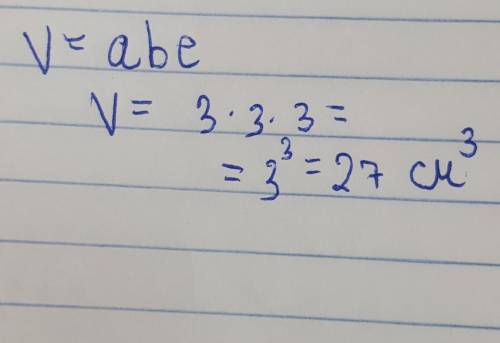 V = abc
V = 3 · 3 · 3 =
= 3³ = 27 см³